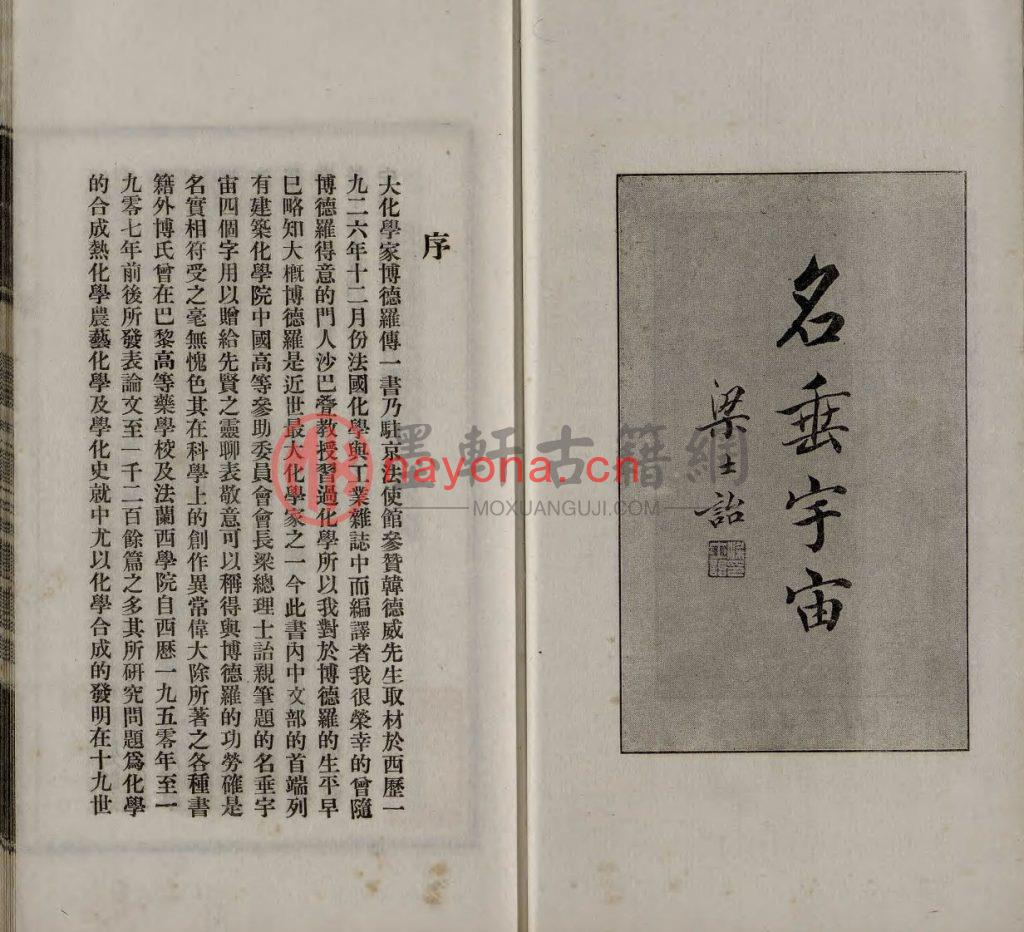 名垂宇宙
梁士詒
序
大化學家博德羅傳一書乃駐京法使館參贊韓德威先生取材於西歷一
九二六年十二月份法國化學與工業雜誌中而編譯者我很榮幸的曾隨
博德羅得意的門人沙巴疊教授習過化學所以我對於博德羅的生平早
巳略知大概博德羅是近世最大化學家之一今此書內中文部的首端列
有建築化學院中國高等參助委員會會長梁總理士詒親筆題的名垂宇
宙四個字用以贈給先賢之靈聊表敬意可以稱得與博德羅的功勞確是
名實相符受之毫無愧色其在科學上的創作異常偉大除所著之各種書
籍外博氏曾在巴黎高等藥學校及法蘭西學院自西歷一九五零年至一
九零七年前後所發表論文至一千二百餘篇之多其所研究問題爲化學
的合成熱化學農藝化學及學化史就中尤以化學合成的發明在十九世
墨軒古籍網
nayona.cn
MOXUANGUJI.COM